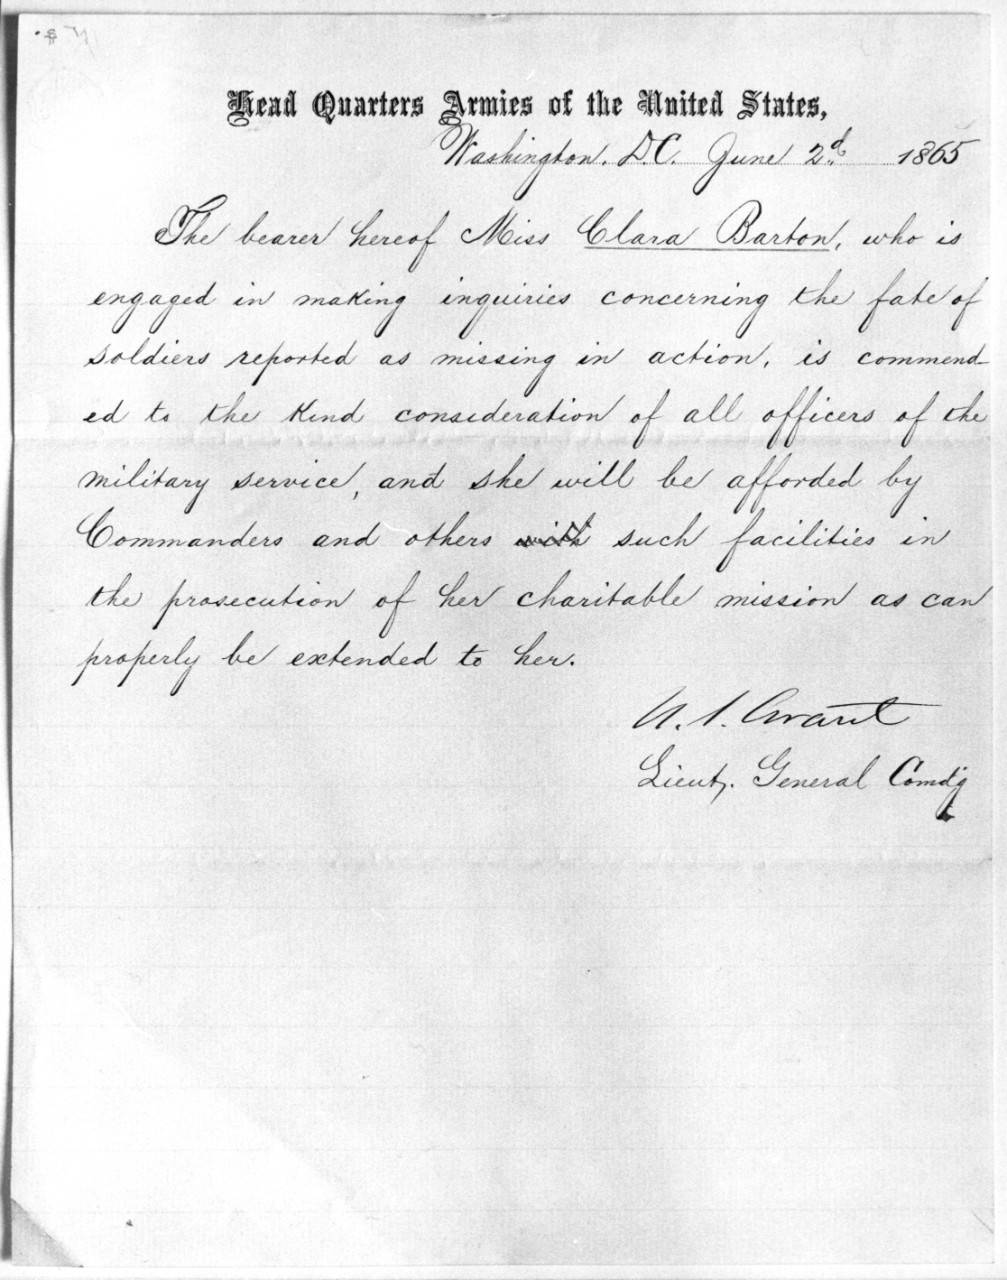 Head Quarters Armies of the United States,
Washington, D.C. June 2d. 1865
The bearer hereof Miss Clara Barton, who is
engaged in making inquiries concerning the fate of
soldiers reported as missing in action, is commend-
ed to the kind consideration of all officers of the
military service, and she will be afforded by
Commanders and others with such facilities in
the prosecution of her charitable mission as can
properly be extended to her.
U. S. Grant
Lieut. General Comd'g